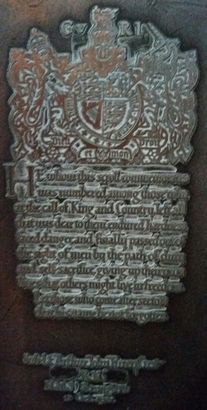 G V R I
He whom this scroll commemorates
was numbered among those who,
at the call of King and Country, left all
that was dear to them, endured hardness,
faced danger, and finally passed out of
the sight of men by the path of duty
and self-sacrifice, giving up their own
lives that others might live in freedom.
Let those who come after see to it
that his name be not forgotten.
Arthur John